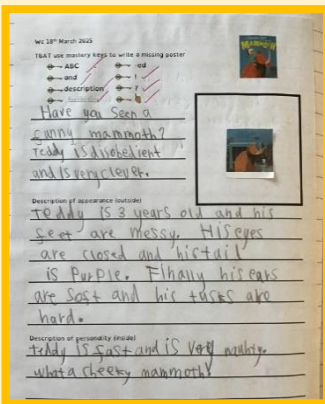 Wc 18th March 2025
TBAT use mastery keys to write a missing poster
ABC
-ed
and
!
description
?
Have you seen a
funny mammoth?
Teddy is disobedient
and is very clever.
Description of appearance (outside)
Teddy is 3 years old and his
feet are messy. His eyes
are closed and his tail
is Purple. Finally his ears
are soft and his tusks are
hard.
Description of personality (inside)
teddy is fast and is very
what a cheeky mammoth!